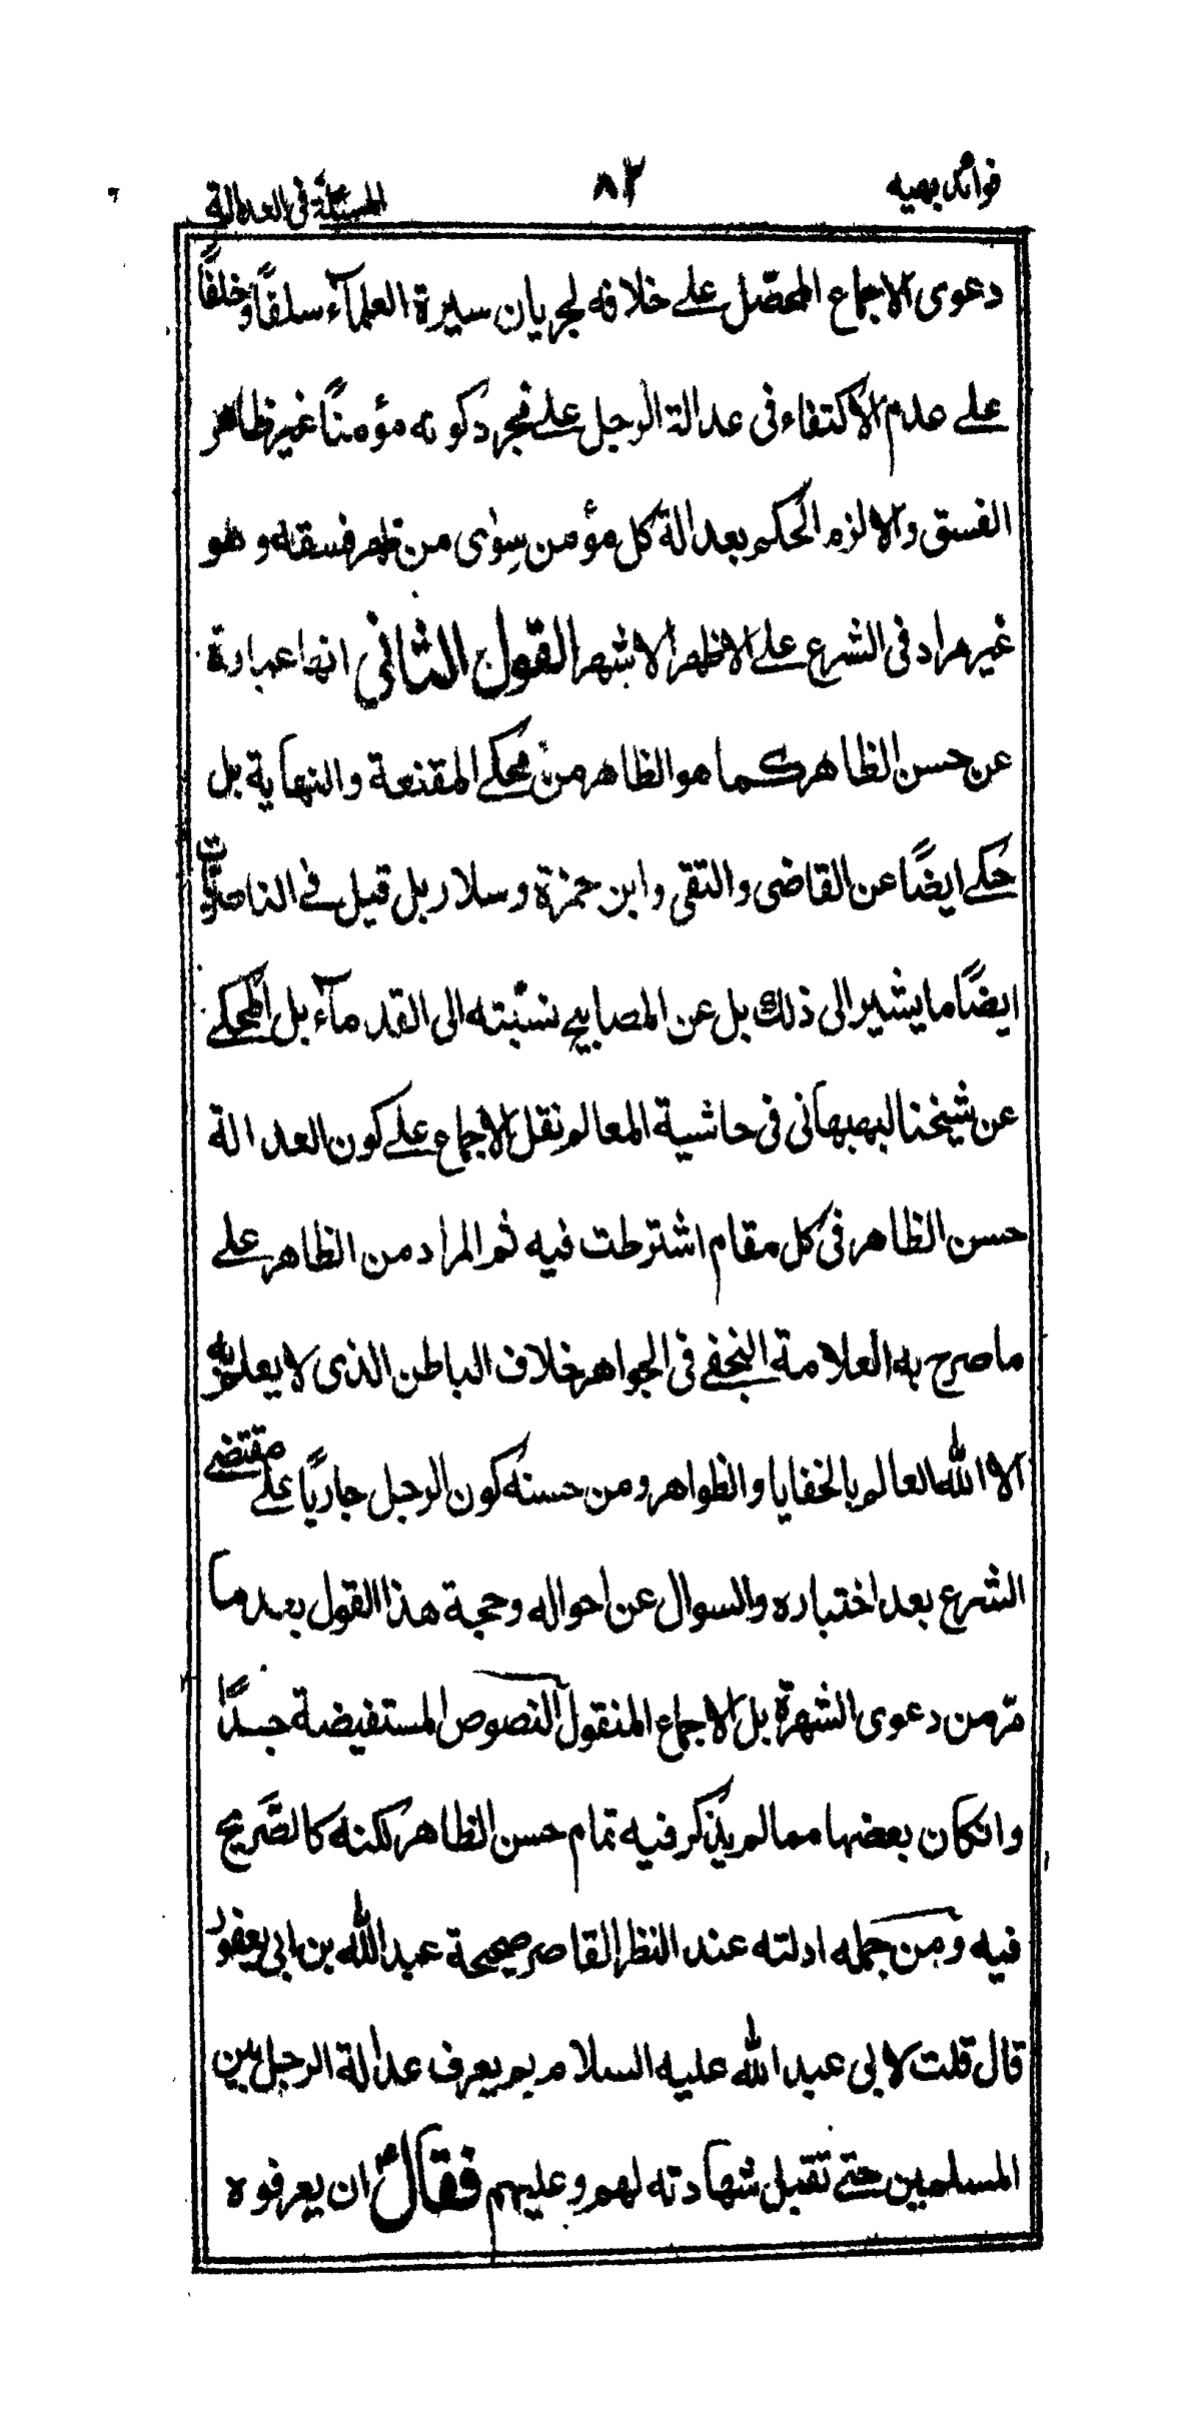 فوائد بهيه ٨٢ المسئلة في العدالة
دعوى الاجماع المحصّل على خلافه لجريان سيرة العلمآء سلفًا وخلفًا
على عدم الاكتفاء فى عدالة الرجل على مجرد كونه مؤمنًا غير ظاهر
الفسق والا لزم الحكم بعدالة كل مؤمن سوى من ظهر فسقه وهو
غير مراد فى الشرع على الاظهر الاشهر القول الثاني انها عبارة
عن حسن الظاهر كما هو الظاهر من محكى المقنعة والنهاية بل
حكى ايضًا عن القاضى والتقى وابن حمزة وسلار بل قيل فى الناصريات
ايضًا ما يشير الى ذلك بل عن المصابيح نسبته الى القدمآء بل المحكى
عن شيخنا البهبهانى فى حاشية المعالم نقل الاجماع على كون العدالة
حسن الظاهر فى كل مقام اشترطت فيه ثم المراد من الظاهر على
ما صرح به العلامة النجفى فى الجواهر خلاف الباطن الذى لا يعلم به
الا الله العالم بالخفايا والظواهر ومن حسنه كون الرجل جاريًا على مقتضى
الشرع بعد اختباره والسوال عن احواله وحجية هذا القول بعد ما
مرّ من دعوى الشهرة بل الاجماع المنقول النصوص المستفيضة جدًا
وانكان بعضها مما لم يذكر فيه تمام حسن الظاهر لكنه كالصّريح
فيه ومن جمله ادلته عند النظر القاصر صحيحة عبد الله بن ابى يعفور
قال قلت لابى عبد الله عليه السلام بم يعرف عدالة الرجل بين
المسلمين حتى تقبل شهادته لهم وعليهم فقالؑ ان يعرفوه